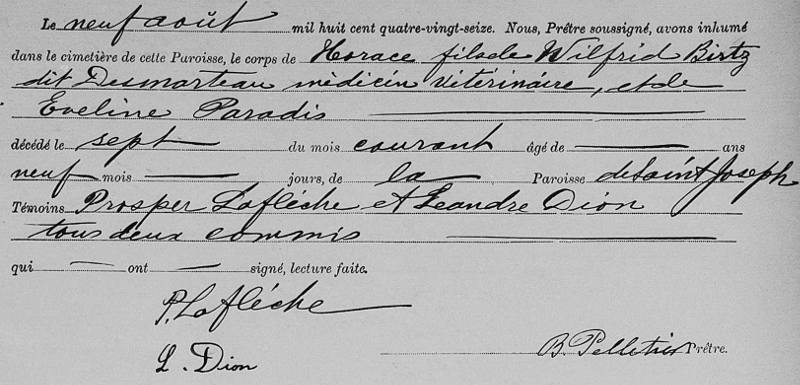 Le neuf août mil huit cent quatre-vingt-seize. Nous, Prêtre soussigné, avons inhumé
dans le cimetière de cette Paroisse, le corps de Horace fils de Wilfrid Birtz
dit Desmarteau médicin vétérinaire, et de
Eveline Paradis
décédé le sept du mois courant âgé de ans
neuf mois jours, de la Paroisse de Saint Joseph
Témoins Prosper Lafléche et Leandre Dion
tous deux commis
qui ont signé, lecture faite.
P. Lafléche
L. Dion
B. Pelletier Prêtre.